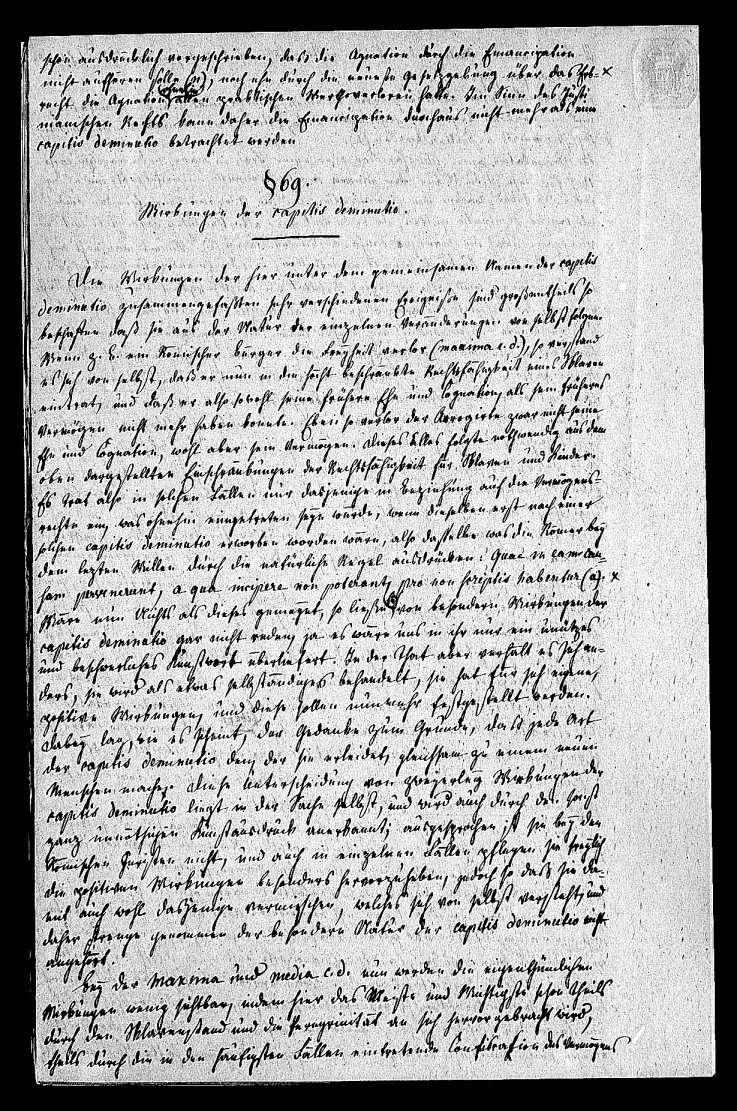 schon ausdrücklich vorgeschrieben, daß die Agnation durch die Emancipation
nicht aufhören solle (n), noch ehe durch die neueste Gesetzgebung über das Erb- x
recht die Agnation allen praktischen Werth verloren hatte. Im Sinn des Justi
nianischen Rechts kann daher die Emancipation durchaus nicht mehr als eine
capitis deminutio betrachtet werden
§ 69.
Wirkungen der capitis deminutio.
Die Wirkungen der hier unter dem gemeinsamen Namen der capitis
deminutio zusammengefaßten sehr verschiedenen Ereignisse sind großentheils so
beschaffen daß sie aus der Natur der einzelnen Veränderungen von selbst folgen.
Wenn z. B. ein Römischer Bürger die Freyheit verlor (maxima c. d.), so verstand
es sich von selbst, daß er nun in die höchst beschränkte Rechtsfähigkeit eines Sklaven
eintrat, und daß er also sowohl seine frühere Ehe und Cognation, als sein früheres
Vermögen nicht mehr haben konnte. Eben so verlor der Arrogirte zwar nicht seine
Ehe und Cognation, wohl aber sein Vermögen. Dieses Alles folgte nothwendig aus den
oben dargestellten Einschränkungen der Rechtsfähigkeit für Sklaven und Kinder.
Es trat also in solchen Fällen nur dasjenige in Beziehung auf die Vermögens-
rechte ein, was ohnehin eingetreten seyn würde, wenn dieselben erst nach einer
solchen capitis deminutio erworben worden wären, also dasselbe was die Römer bey
dem letzten Willen durch die natürliche Regel ausdrücken: Quae in eam cau-
sam pervenerunt, a qua incipere non poterant, pro non scriptis habentur (a). x
Wäre nun Nichts als dieses gemeynt, so ließe sich von besondern Wirkungen der
capitis deminutio gar nicht reden, ja es wäre uns in ihr nur ein unnützes
und beschwerliches Kunstwort überliefert. In der That aber verhält es sich an-
ders, sie wird als etwas selbständiges behandelt, sie hat für sich eigene,
positive Wirkungen, und diese sollen nunmehr festgestellt werden.
Dabey lag, wie es scheint, der Gedanke zum Grunde, daß jede Art
der capitis deminutio den, der sie erleidet, gleichsam zu einem neuen
Menschen mache. Diese Unterscheidung von zweyerley Wirkungen der
capitis deminutio liegt in der Sache selbst, und wird auch durch den sonst
ganz unnöthigen Kunstausdruck anerkannt; ausgesprochen ist sie bey den
Römischen Juristen nicht, und auch in einzelnen Fällen pflegen sie freylich
die positiven Wirkungen besonders hervorzuheben, jedoch so daß sie da-
mit auch wohl dasjenige vermischen, welches sich von selbst versteht, und
daher strenge genommen der besondern Natur der capitis deminutio nicht
angehört.
Bey der maxima und media c. d. nun werden die eigenthümlichen
Wirkungen wenig sichtbar, indem hier das Meiste und Wichtigste schon theils
durch den Sklavenstand und die Peregrinität an sich hervorgebracht wird,
theils durch die in den häufigsten Fällen eintretende Confiscation des Vermögens